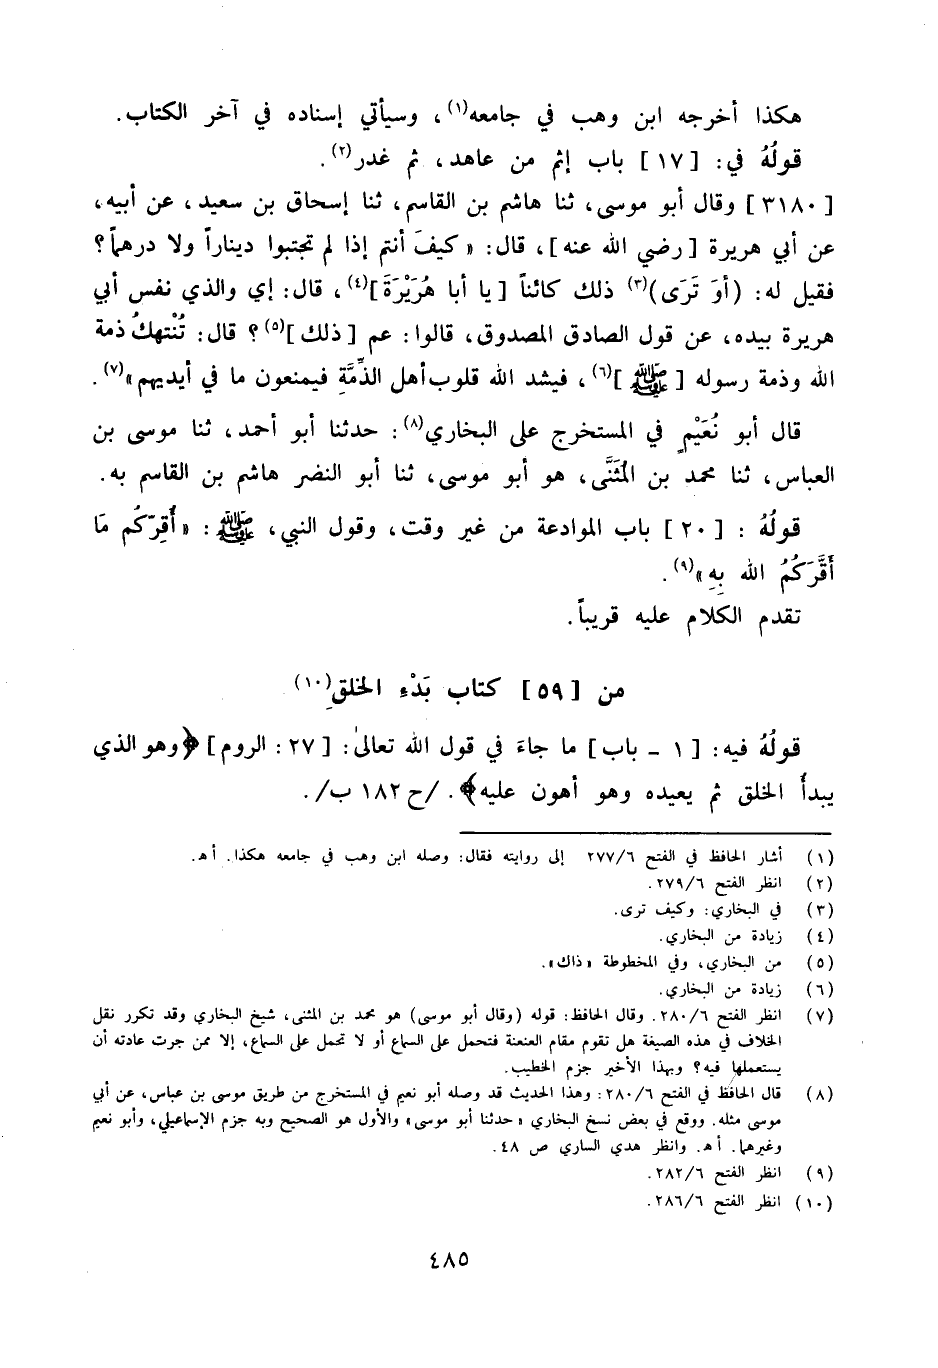 هكذا أخرجه ابن وهب في جامعه(١)، وسيأتي إسناده في آخر الكتاب.
قولُهُ في: [١٧] باب إثم من عاهد، ثم غدر(٢).
[٣١٨٠] وقال أبو موسى، ثنا هاشم بن القاسم، ثنا إسحاق بن سعيد، عن أبيه،
عن أبي هريرة [رضي الله عنه]، قال: «كيفَ أنتم إذا لم تجتبوا ديناراً ولا درهماً؟
فقيل له: (أوَ تَرَى)(٣) ذلك كائناً [يا أبا هُرَيْرَةَ](٤)، قال: إي والذي نفس أبي
هريرة بيده، عن قول الصادق المصدوق، قالوا: عم [ذلك](٥)؟ قال: تُنْتهكُ ذمة
الله وذمة رسوله [ﷺ](٦)، فيشد الله قلوب أهل الذِّمَّةِ فيمنعون ما في أيديهم»(٧).
قال أبو نُعَيْمٍ في المستخرج على البخاري(٨): حدثنا أبو أحمد، ثنا موسى بن
العباس، ثنا محمد بن المُثَنَّى، هو أبو موسى، ثنا أبو النضر هاشم بن القاسم به.
قولُهُ : [٢٠] باب الموادعة من غير وقت، وقول النبي، ﷺ: «أُقِرّكُم مَا
أَقَّرَكُمُ الله بِهِ»(٩).
تقدم الكلام عليه قريباً.
من [٥٩] كتاب بَدْءِ الخلقِ(١٠)
قولُهُ فيه: [١ - باب] ما جاءَ في قول الله تعالىٰ: [٢٧: الروم] ﴿وهو الذي
يبدأُ الخلق ثم يعيده وهو أهون عليه﴾. /ح ١٨٢ ب/.
(١) أشار الحافظ في الفتح ٢٧٧/٦ إلى روايته فقال: وصله ابن وهب في جامعه هكذا. أ هـ.
(٢) انظر الفتح ٢٧٩/٦.
(٣) في البخاري: وكيف ترى.
(٤) زيادة من البخاري.
(٥) من البخاري، وفي المخطوطة «ذاك».
(٦) زيادة من البخاري.
(٧) انظر الفتح ٢٨٠/٦. وقال الحافظ: قوله (وقال أبو موسى) هو محمد بن المثنى، شيخ البخاري وقد تكرر نقل
الخلاف في هذه الصيغة هل تقوم مقام العنعنة فتحمل على السماع أو لا تحمل على السماع، إلا ممن جرت عادته أن
يستعملها فيه؟ وبهذا الأخير جزم الخطيب.
(٨) قال الحافظ في الفتح ٢٨٠/٦: وهذا الحديث قد وصله أبو نعيم في المستخرج من طريق موسى بن عباس، عن أبي
موسى مثله. ووقع في بعض نسخ البخاري «حدثنا أبو موسى» والأول هو الصحيح وبه جزم الإسماعيلي، وأبو نعيم
وغيرهما. أ هـ. وانظر هدي الساري ص ٤٨.
(٩) انظر الفتح ٢٨٢/٦.
(١٠) انظر الفتح ٢٨٦/٦.
٤٨٥